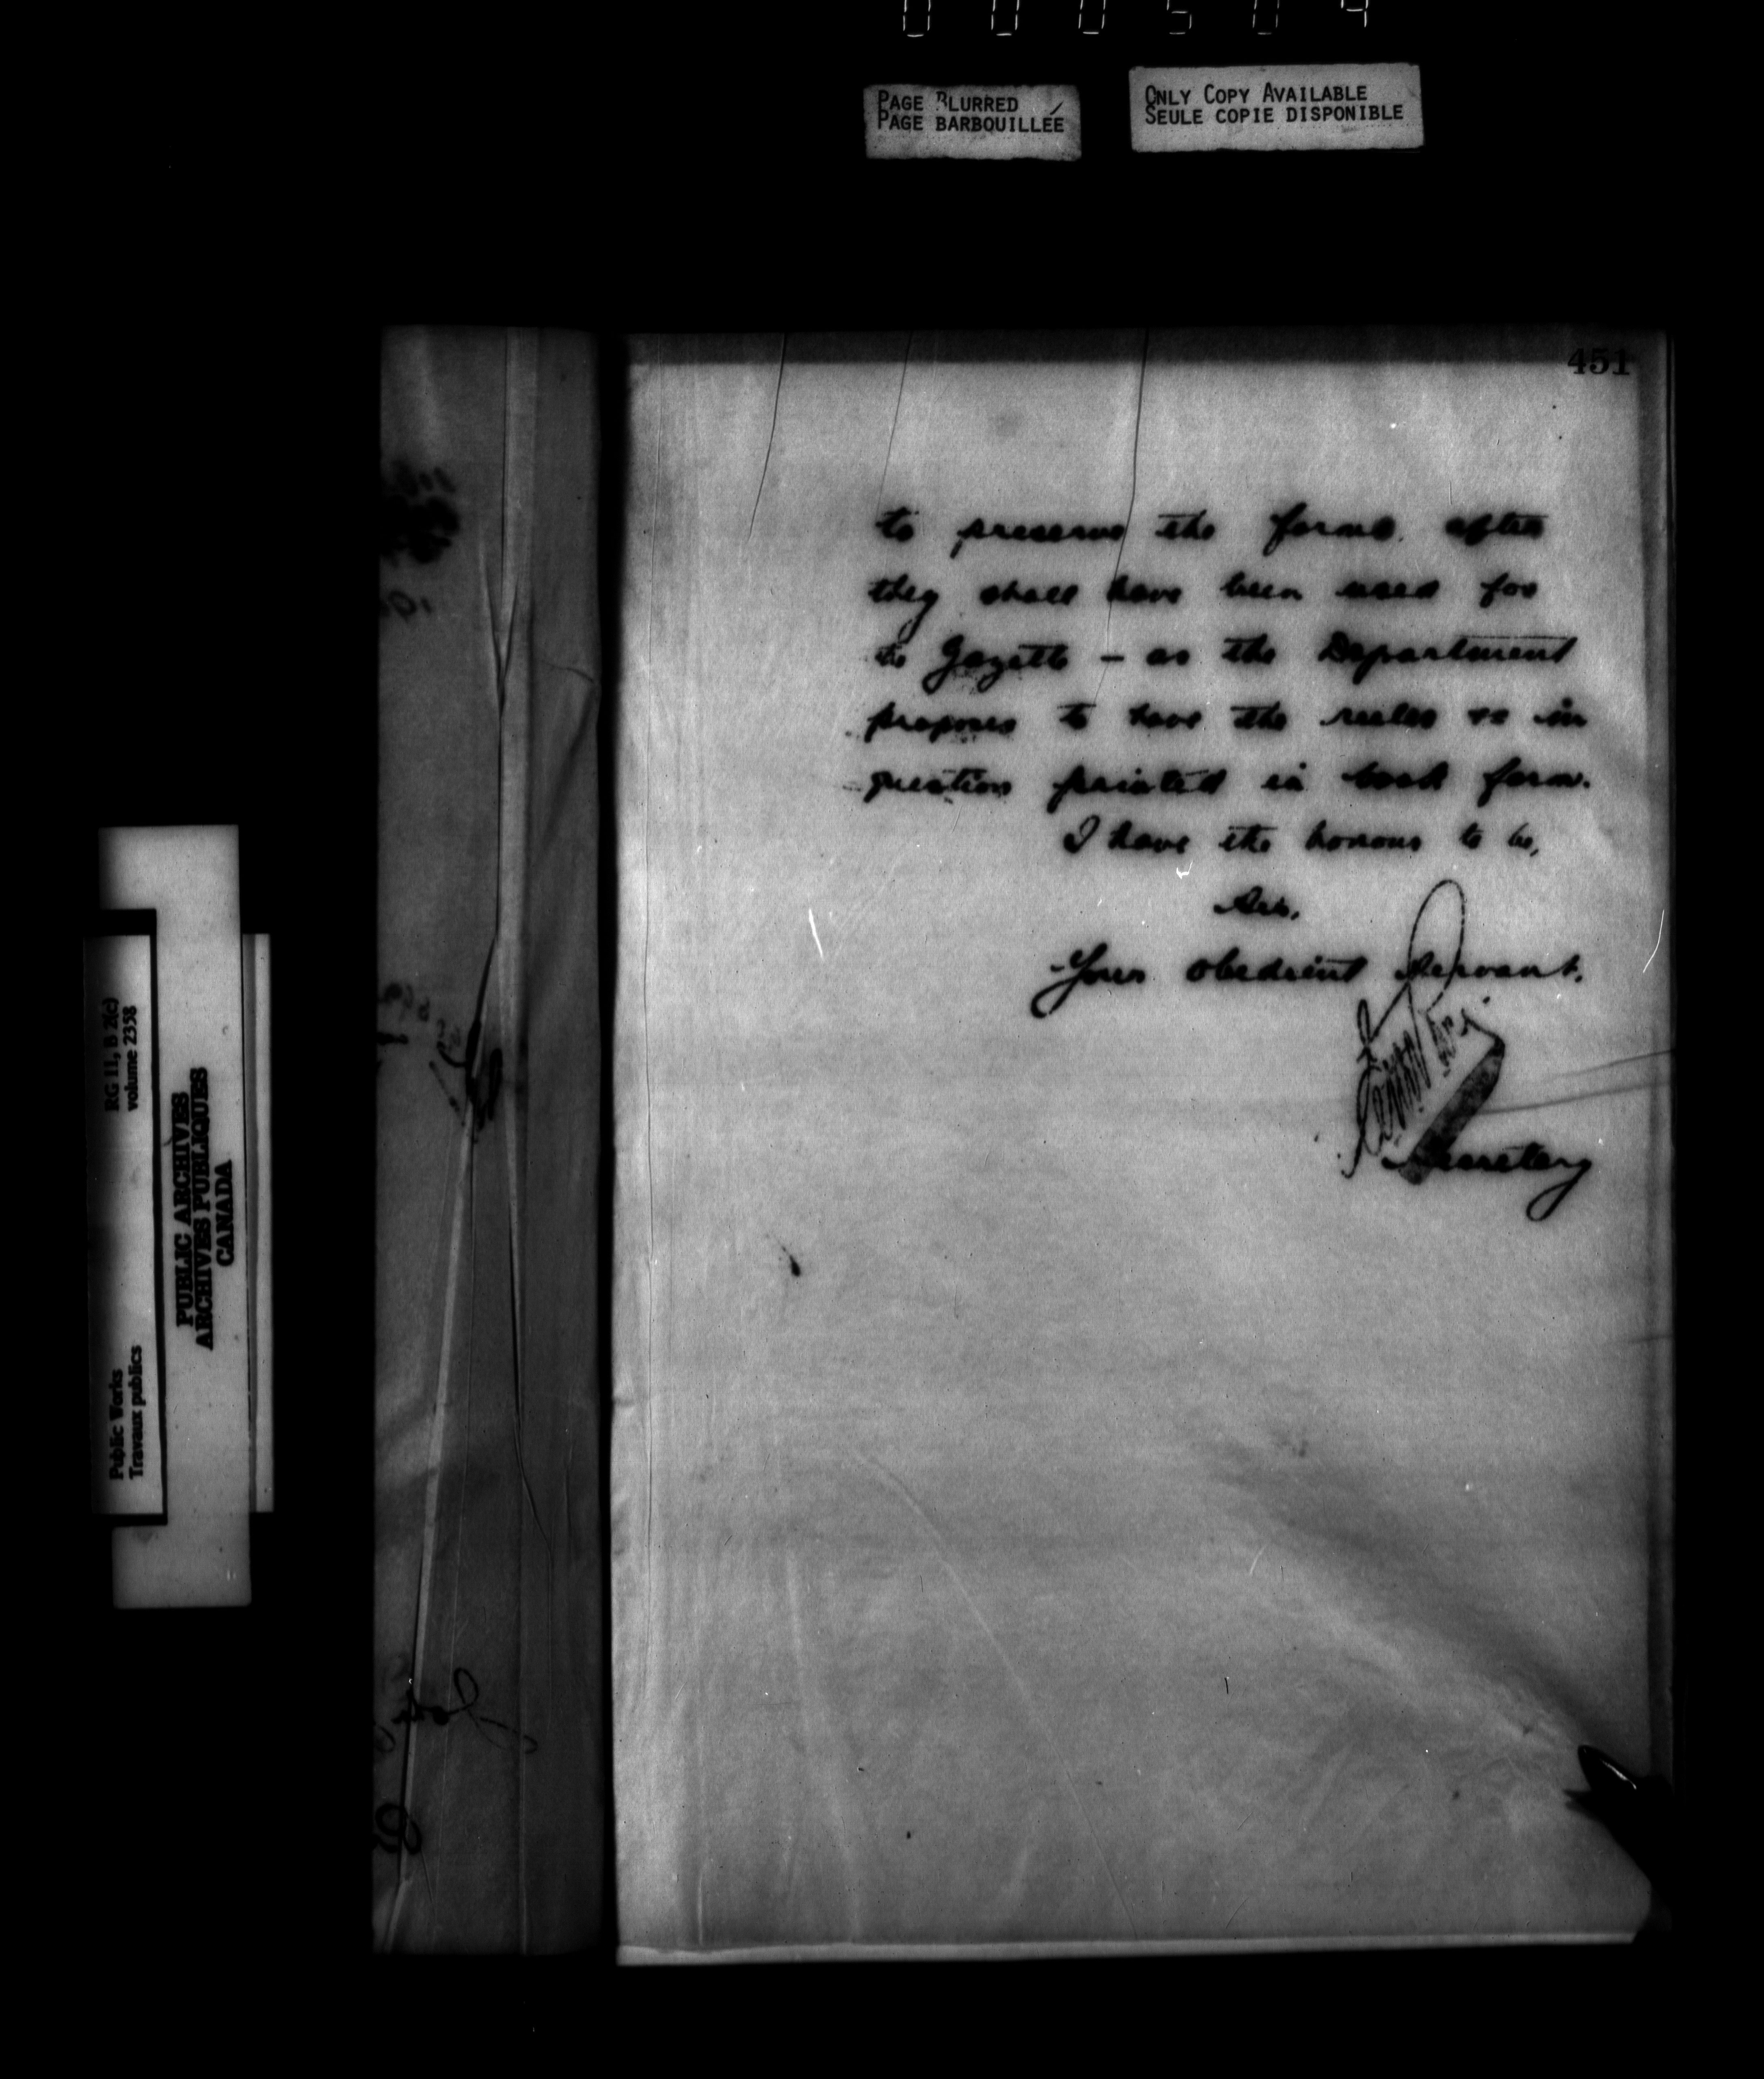 000504
PAGE BLURRED
PAGE BARBOUILLÉE
ONLY COPY AVAILABLE
SEULE COPIE DISPONIBLE
451
to preserve the forms after
they shall have been used for
the Gazette – as the Department
proposes to have the rules &c in
question printed in book form.
I have the honour to be,
Sir,
Your obedient servant,
Secretary
RG 11, B 2(c)
volume 2358
Public Works
Travaux publics
PUBLIC ARCHIVES
ARCHIVES PUBLIQUES
CANADA